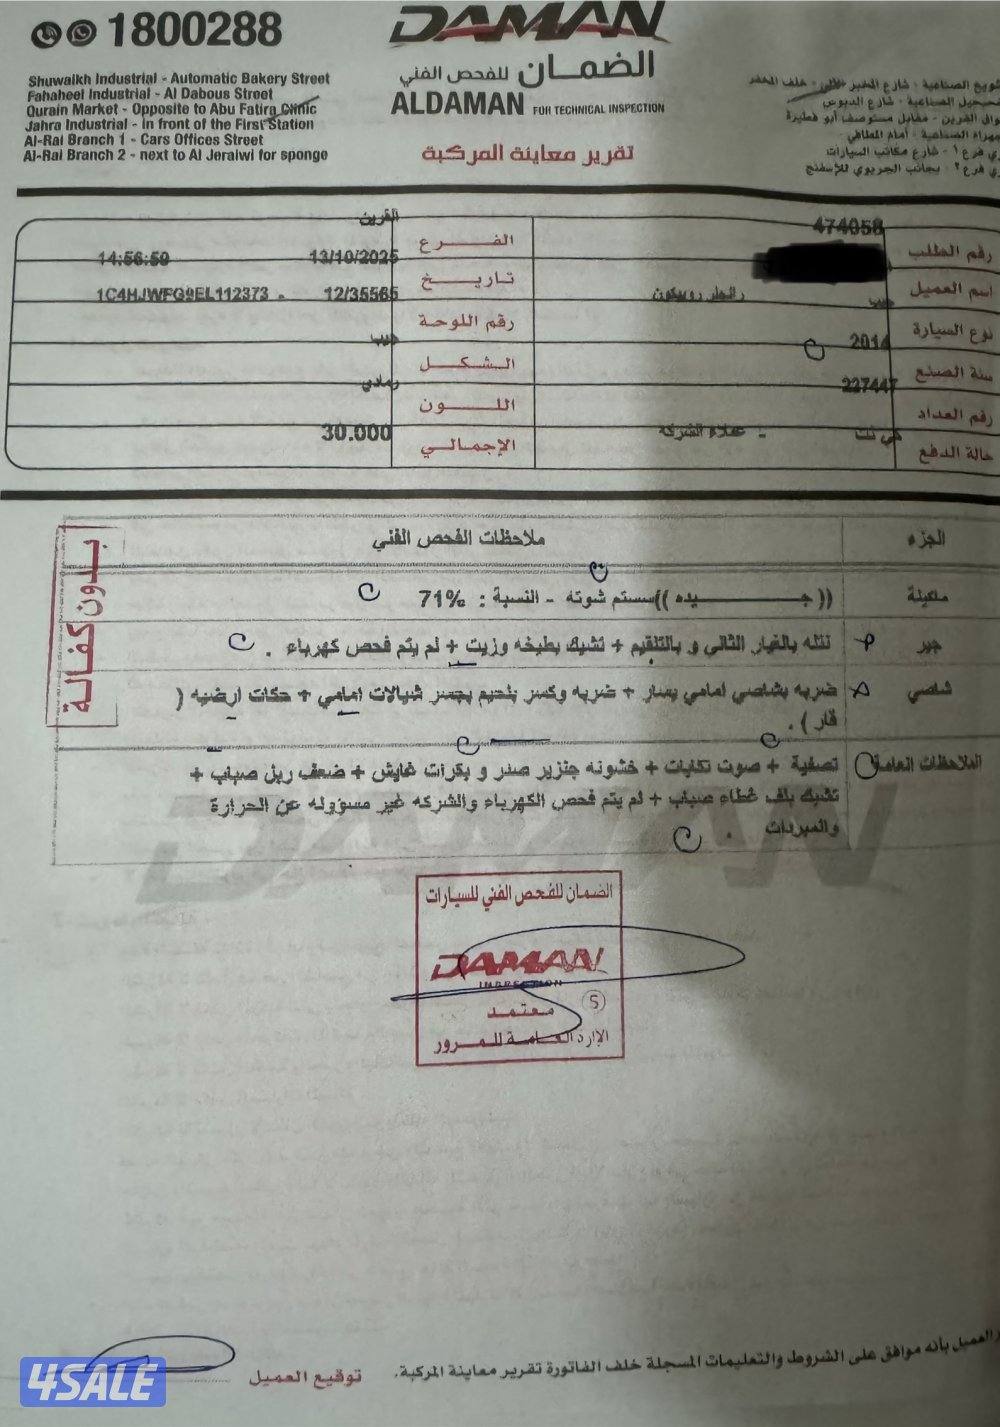 1800288
DAMAN
الضمان للفحص الفني
ALDAMAN FOR TECHNICAL INSPECTION
تقرير معاينة المركبة
Shuwaikh Industrial - Automatic Bakery Street
Fahaheel Industrial - Al Dabous Street
Qurain Market - Opposite to Abu Fatira Clinic
Jahra Industrial - in front of the First Station
Al-Rai Branch 1 - Cars Offices Street
Al-Rai Branch 2 - next to Al Jeraiwi for sponge
الصناعية - شارع المخبز الآلي - خلف المخفر
الصناعية - شارع الدبوس
القرين - مقابل مستوصف أبو فطيرة
الصناعية - أمام المطافي
فرع ١ - شارع مكاتب السيارات
فرع ٢ - بجانب الجريوي للإسفنج
رقم الطلب 474058
الفرع القرين
اسم العميل
تاريخ 13/10/2025 14:56:50
نوع السيارة جيب رانجلر روبيكون
رقم اللوحة 12/35565 - 1C4HJWFG9EL112373
سنة الصنع 2014
الشكل جيب
رقم العداد 227447
اللون رمادي
حالة الدفع كي نت - عملاء الشركه
الإجمالي 30.000
بدون كفالة
الجزء ملاحظات الفحص الفني
ماكينة ((جـــيده))سستم شوته - النسبة : 71%
جير نتله بالغيار الثالي و بالتلقيم + تشيك بطيخه وزيت + لم يتم فحص كهرباء .
شاصي ضربه بشاصي امامي يسار + ضربه وكسر بلحيم بجسر شيالات امامي + حكات ارضيه (
قار ) .
الملاحظات العامة تصفية + صوت تكايات + خشونه جنزير صدر و بكرات غمايش + ضعف ربل صباب +
تشيك بلف غطاء صباب + لم يتم فحص الكهرباء والشركه غير مسؤوله عن الحرارة
والمبردات .
الضمان للفحص الفني للسيارات
DAMAN
INSPECTION
5
معتمد
الإدارة العامة للمرور
العميل بأنه موافق على الشروط والتعليمات المسجلة خلف الفاتورة تقرير معاينة المركبة.
توقيع العميل
4SALE